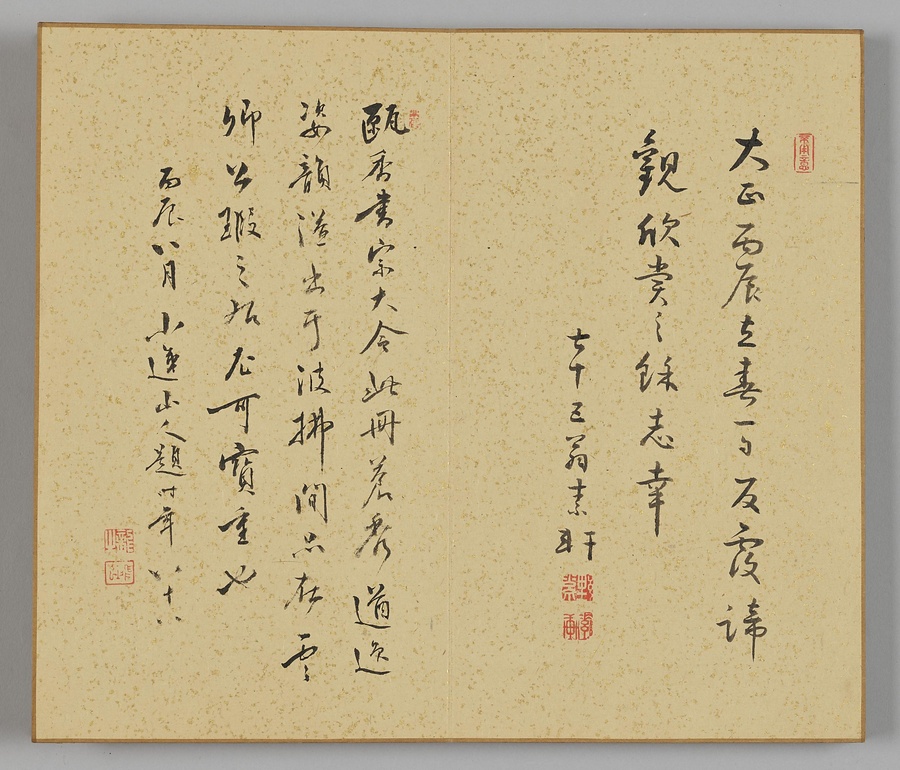 大正丙辰立春一日反霞諦
觀欣賞之餘志幸
七十三翁素軒
甌香書宗大令此冊蒼秀遒逸
姿韻溢出于波拂間品在雲
卿公瑕之右尤可寶重也
丙辰八月 小蓮山人題時年八十八